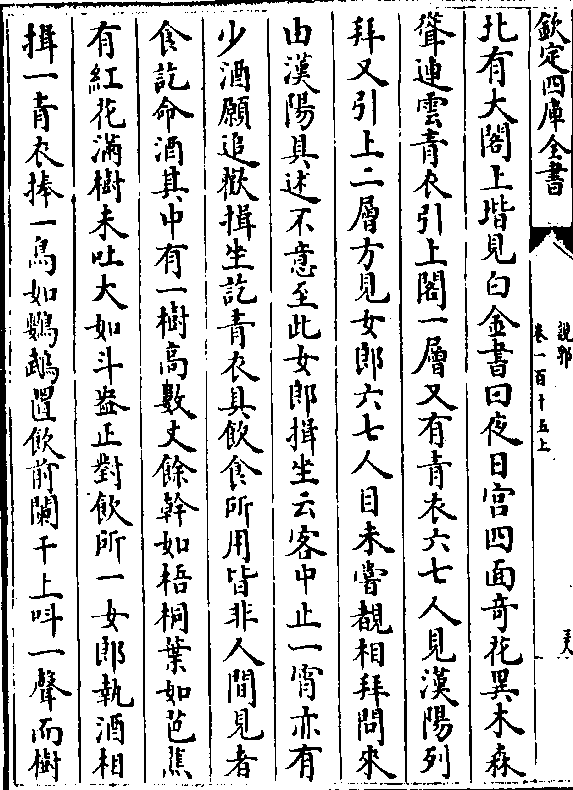 欽定四庫全書
說郛
卷一百十五上
北有大閣上堦見白金書曰夜日宮四面奇花異木森
聳連雲青衣引上閣一層又有青衣六七人見漢陽列
拜又引上二層方見女郎六七人目未嘗覩相拜問來
由漢陽具述不意至此女郎揖坐云客中止一宵亦有
少酒願追歡揖坐訖青衣具飲食所用皆非人間見者
食訖命酒其中有一樹高數丈餘幹如梧桐葉如芭蕉
有紅花滿樹未吐大如斗盎正對飲所一女郎執酒相
揖一青衣捧一鳥如鸚鵡置飲前闌干上呌一聲而樹